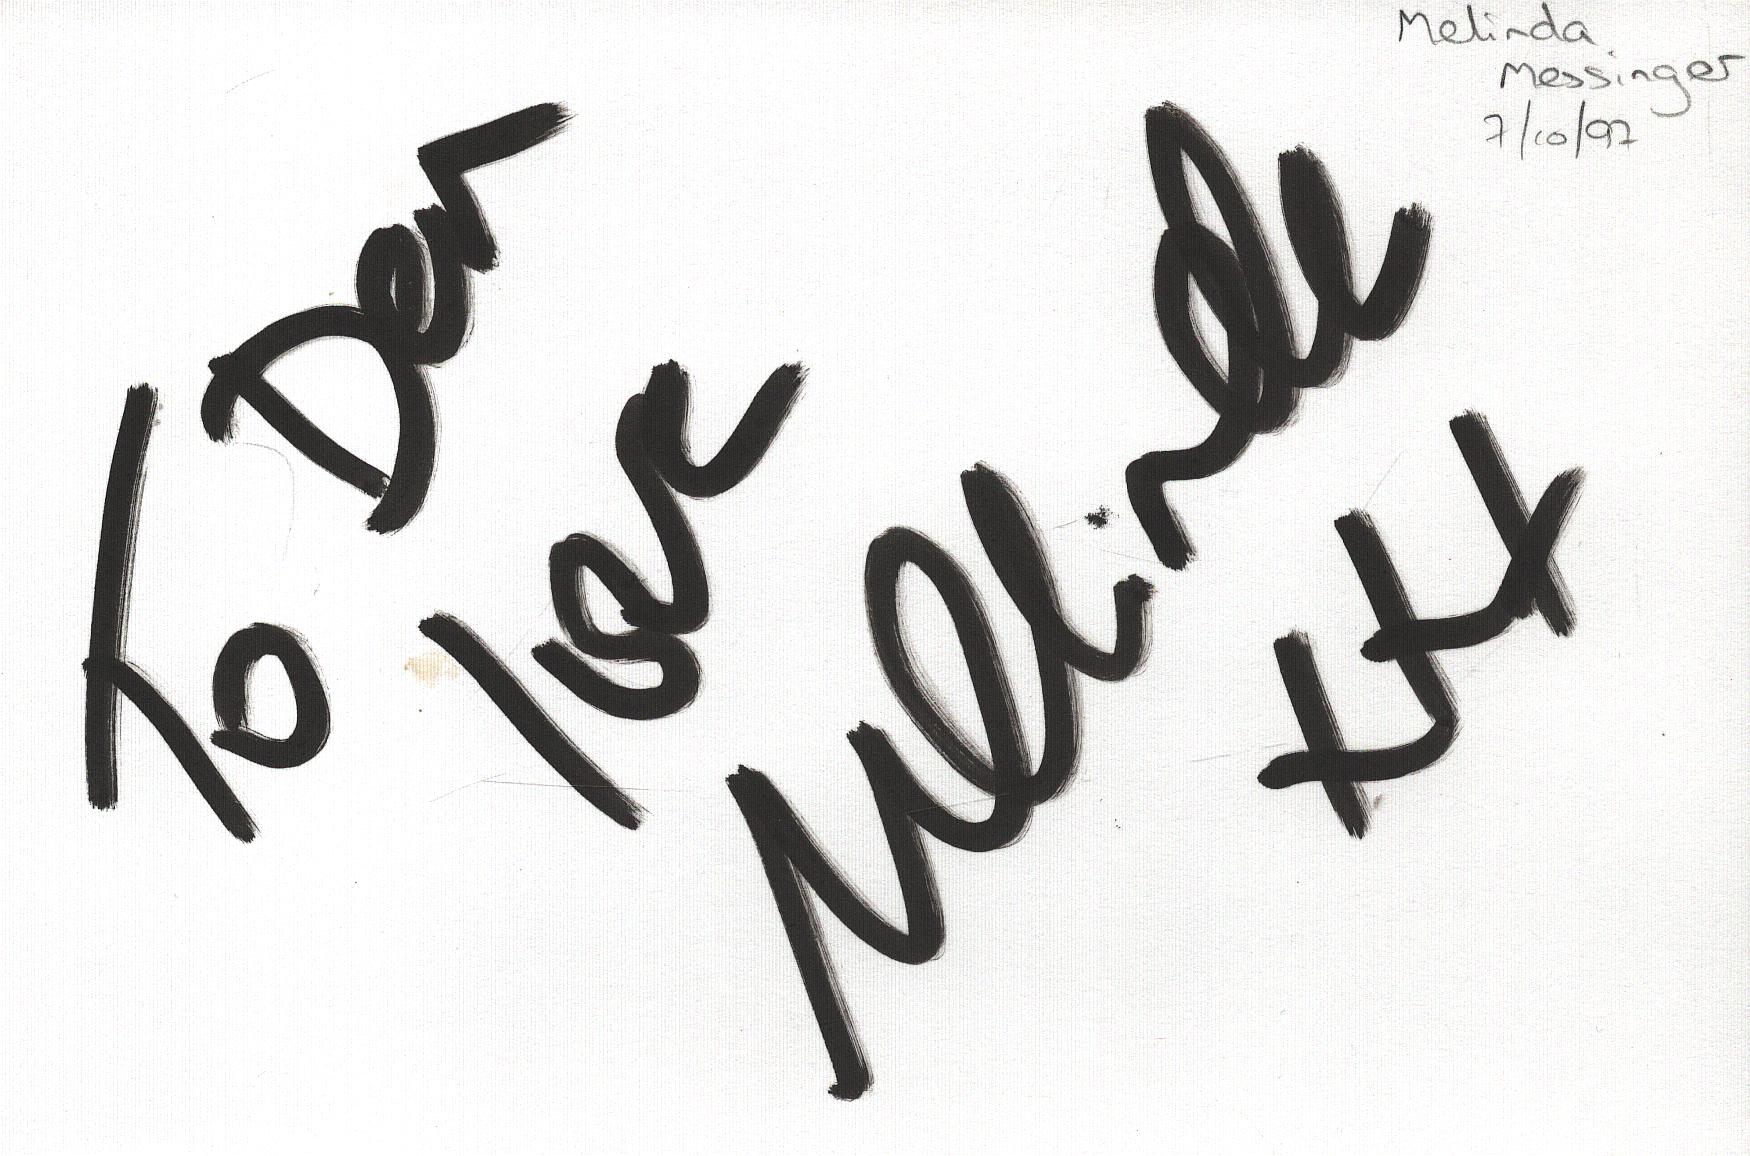 Melinda
Messinger
7/10/97
To Dear
Melinda
xxx